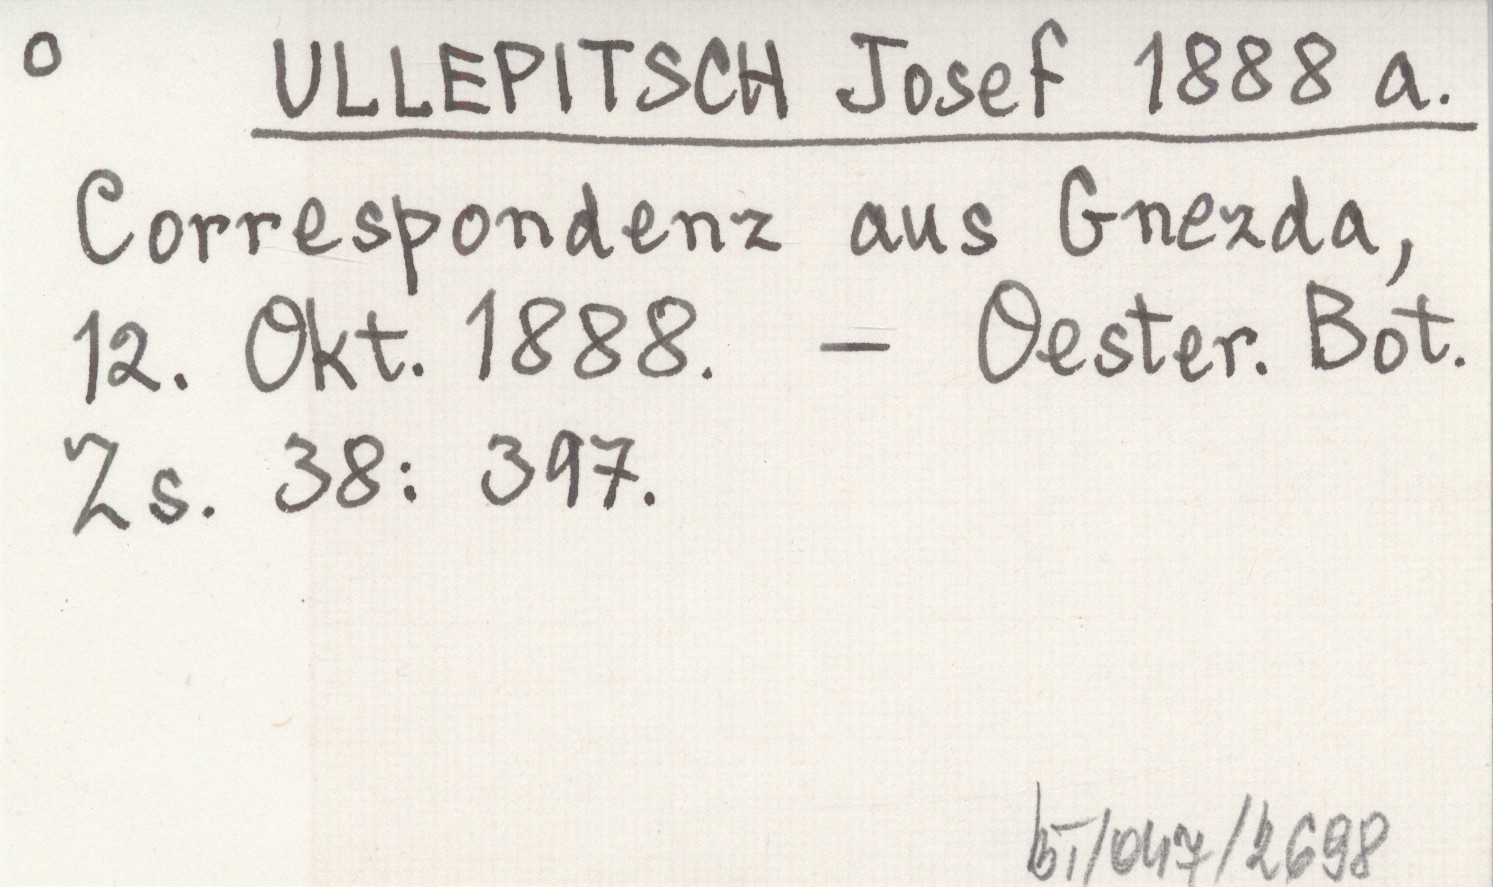 o ULLEPITSCH Josef 1888 a.
Correspondenz aus Gnezda,
12. Okt. 1888. – Oester. Bot.
Zs. 38: 397.
bI/047/2698